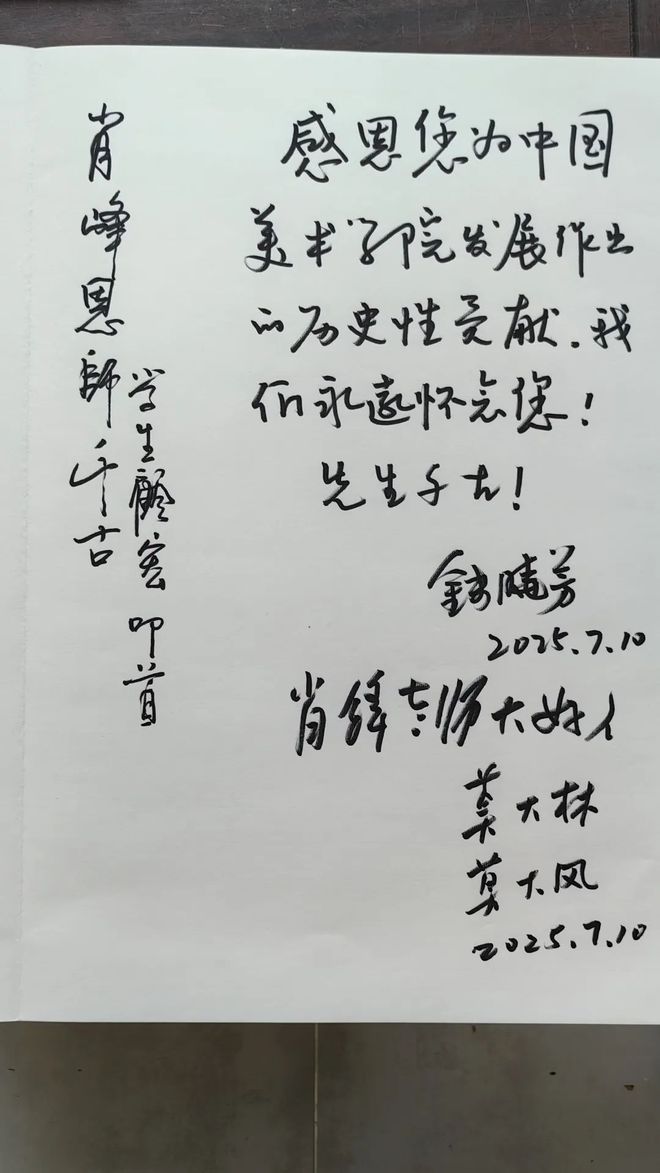 感恩您为中国
美术学院发展作出
的历史性贡献。我
们永远怀念您！
先生千古！
钱晓芳
2025.7.10
肖锋老师大好人
莫大林
莫大风
2025.7.10
肖峰恩師千古
学生顧宏 叩首